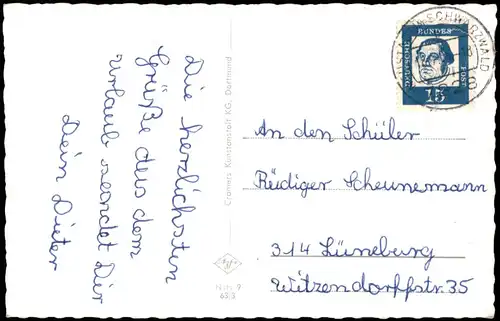 Die herzlichsten
Grüße aus dem
Urlaub sendet Dir
Dein Dieter
Cramers Kunstanstalt KG, Dortmund
SCHWARZWALD
DEUTSCHE
BUNDES
POST
15
An den Schüler
Rüdiger Scheunemann
314 Lüneburg
Witzendorffstr. 35